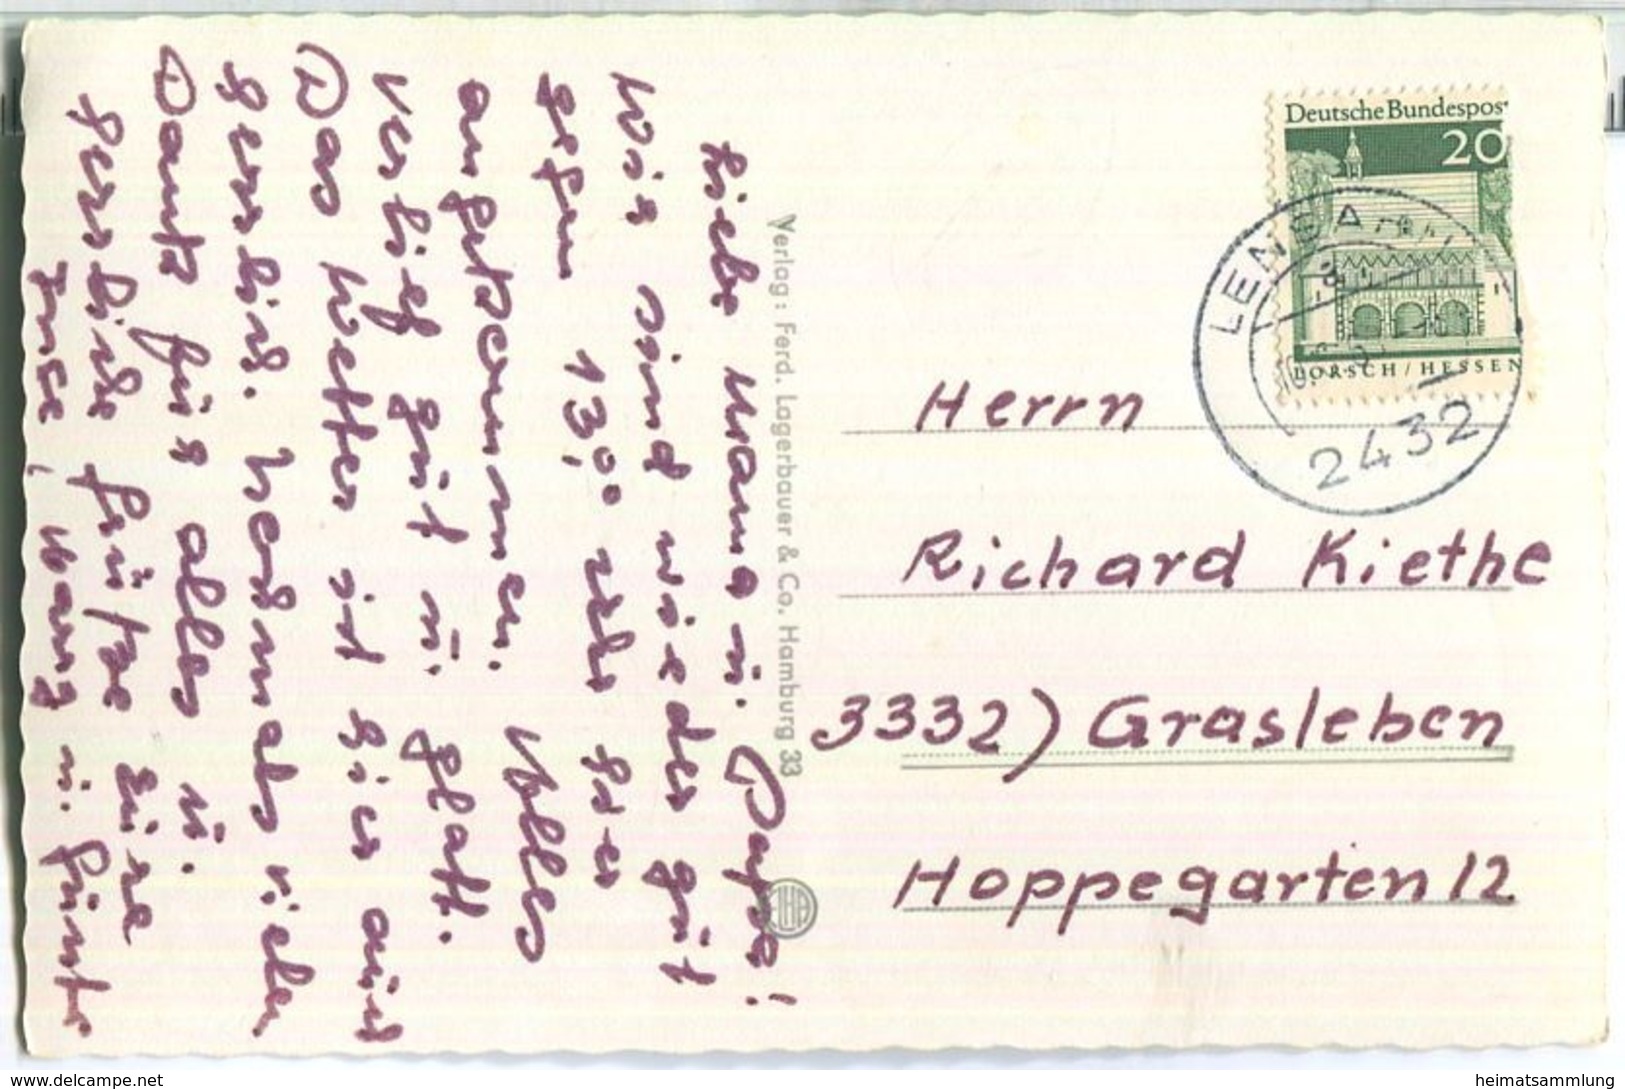 Liebe Mama u. Papa!
Wir sind wieder gut
gegen 13.00 Uhr hier
angekommen. Alles
verlief gut u. glatt.
Das Wetter ist hier auch
herrlich. Nochmals vielen
Dank für alles u.
herzliche Grüße Eure
Inse, Hans u. Günter
Verlag: Ferd. Lagerbauer & Co. Hamburg 33
Deutsche Bundespos
20
LORSCH/HESSEN
LENSAHN
2432
Herrn
Richard Kiethe
3332) Grasleben
Hoppegarten 12
delcampe.net
heimatsammlung